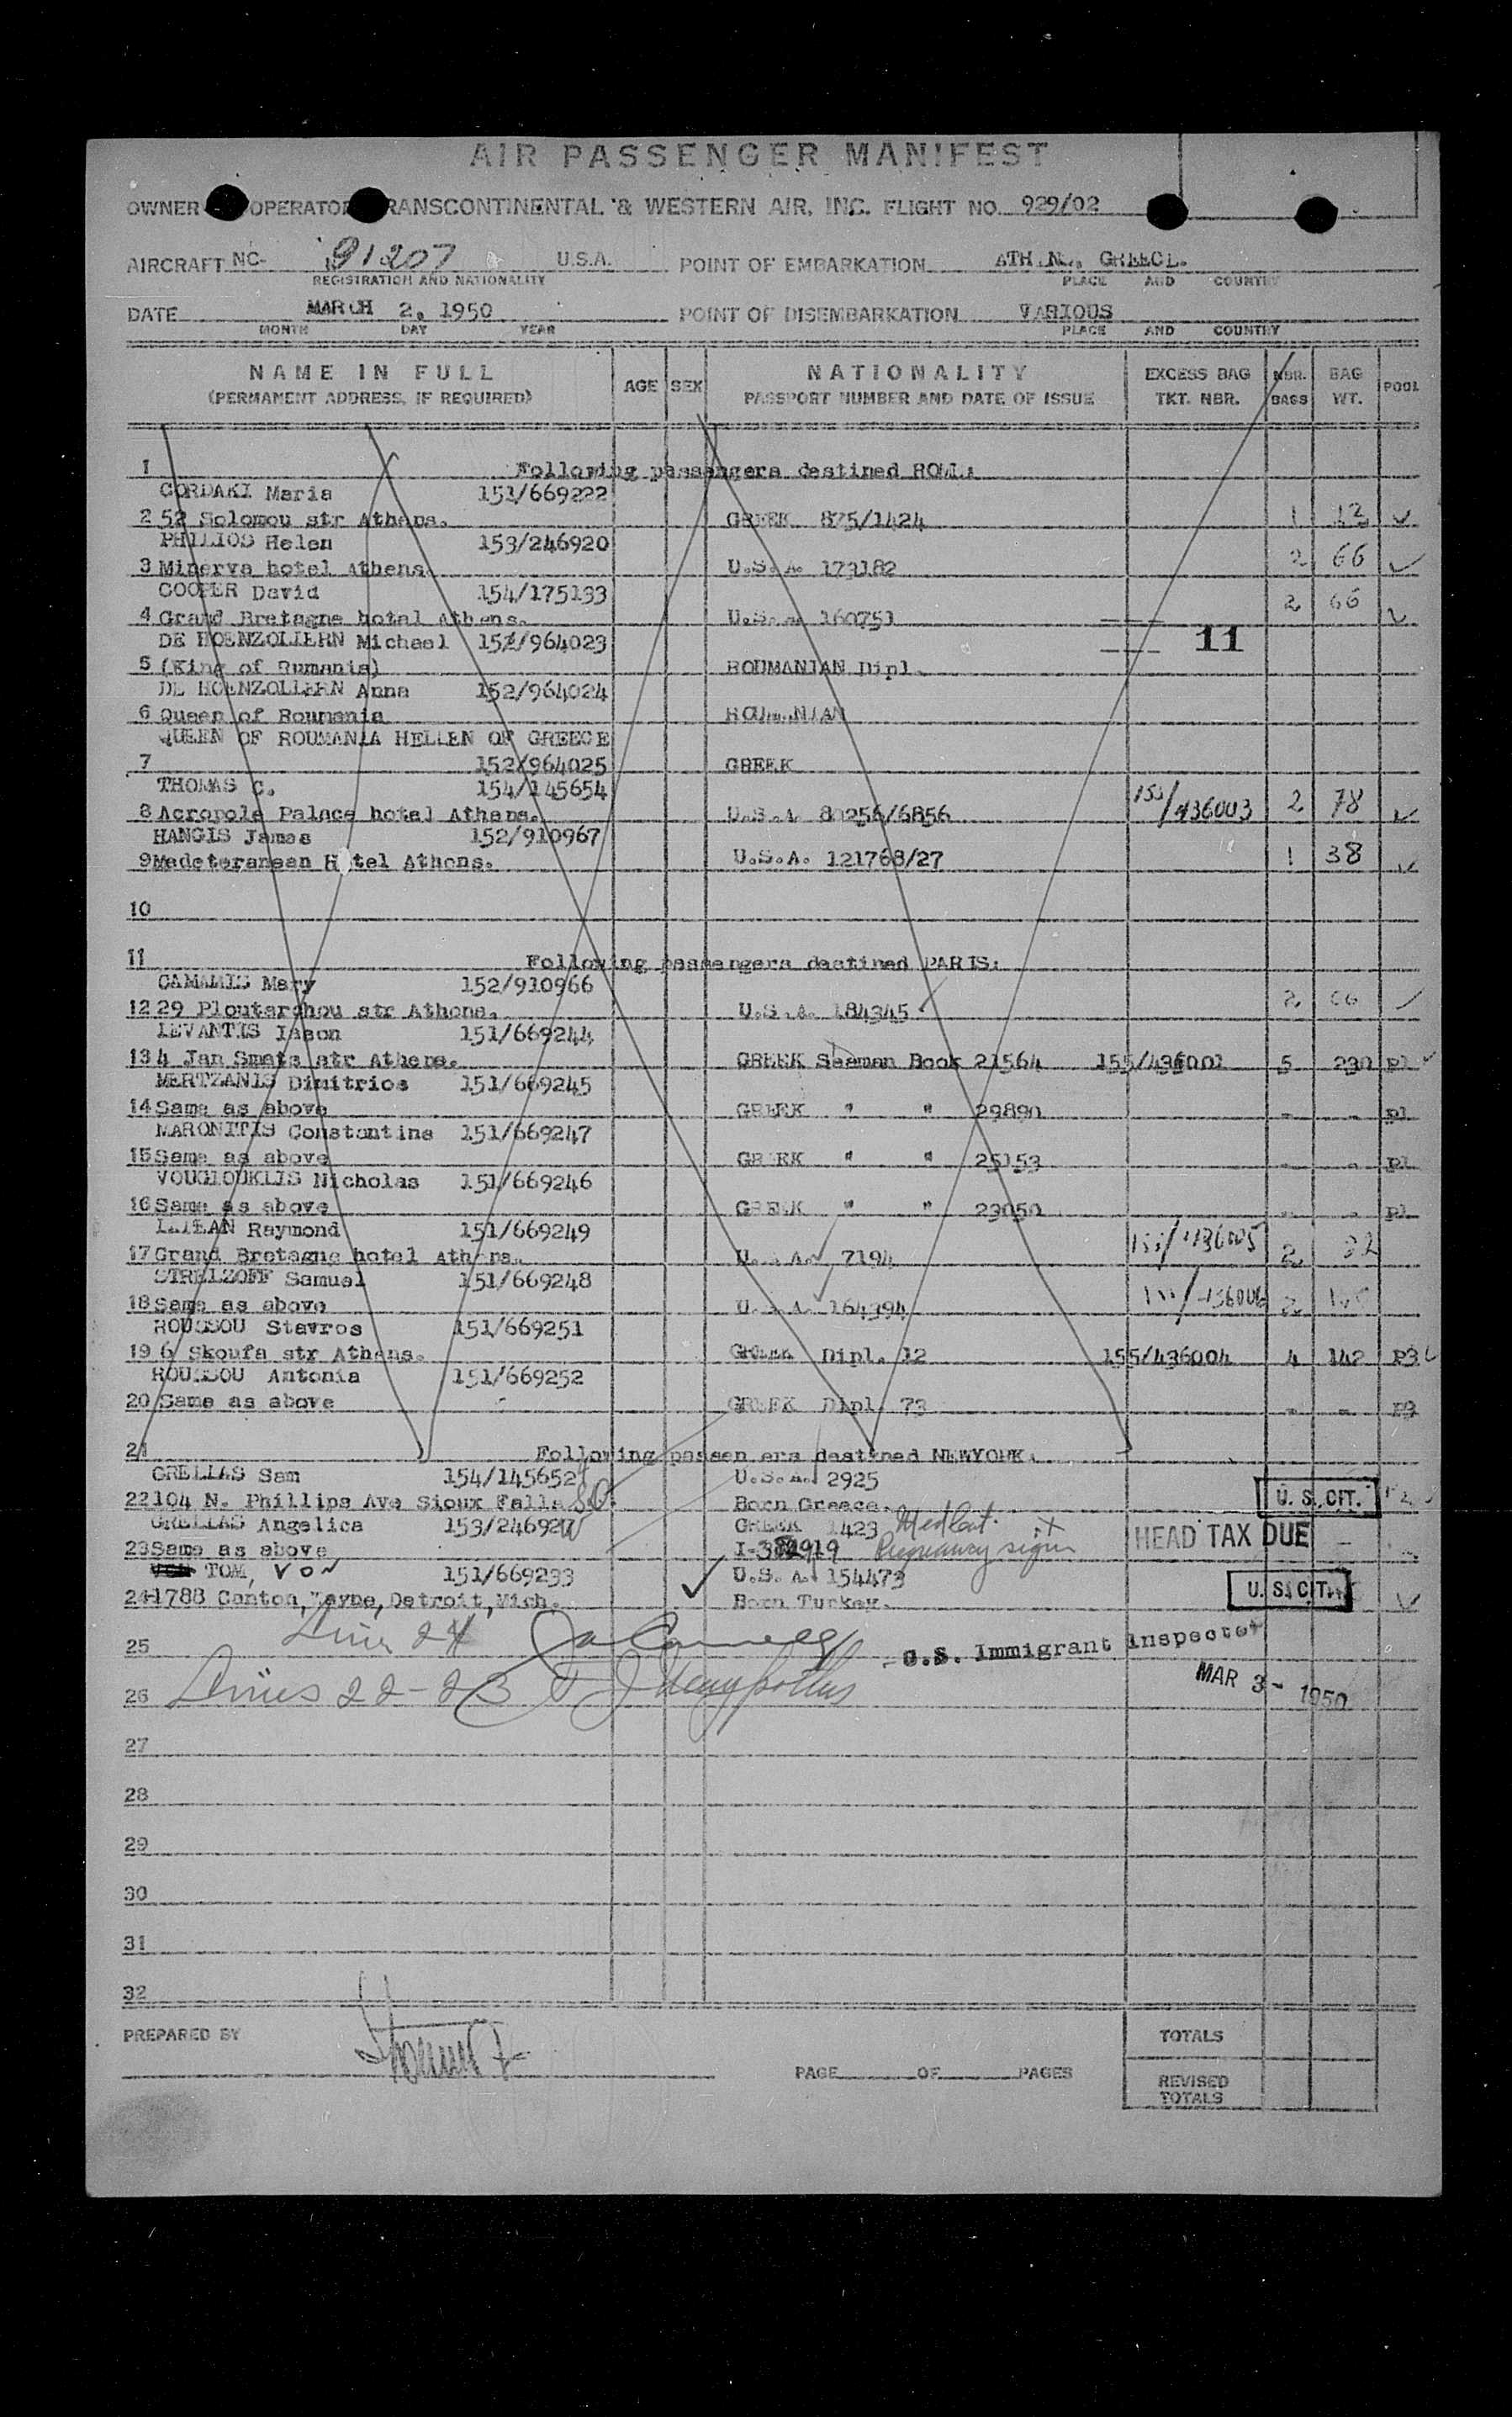 AIR PASSENGER MANIFEST
OWNER OPERATOR TRANSCONTINENTAL & WESTERN AIR, INC. FLIGHT NO. 929/02
AIRCRAFT NC- 91207 U.S.A. POINT OF EMBARKATION GREECE.
REGISTRATION AND NATIONALITY PLACE AND COUNTRY
DATE MARCH 2, 1950 POINT OF DISEMBARKATION VARIOUS
MONTH DAY YEAR PLACE AND COUNTRY
NAME IN FULL AGE SEX NATIONALITY EXCESS BAG NBR. BAG POOL
(PERMANENT ADDRESS, IF REQUIRED) PASSPORT NUMBER AND DATE OF ISSUE TKT. NBR. BAGS WT.
1 Following passengers destined
CORDAKI Maria 151/669222
2 52 Solomou str Athens. GREEK 875/1424 1 12
PHILLIOS Helen 153/246920
3 Minerva hotel Athens U.S.A. 173182 2 66
COOPER David 154/175133
4 Grand Bretagne hotel Athens. U.S.A. 160751 2 66
DE HOENZOLLERN Michael 152/964023 11
5 (King of Rumania) ROUMANIAN Dipl.
DE HOENZOLLERN Anna 152/964024
6 Queen of Roumania ROUMANIAN
QUEEN OF ROUMANIA HELLEN OF GREECE
7 152/964025 GREEK
THOMAS C. 154/145654
8 Acropole Palace hotel Athens. U.S.A. 80256/6856 /436003 2 78
HANGIS James 152/910967
9 Medeteranean Hotel Athens. U.S.A. 121768/27 1 38
10
11 Following passengers destined PARIS:
CAMAMIS Mary 152/910966
12 29 Ploutarchou str Athens. U.S.A. 184345 2
LEVANTIS Iason 151/669244
13 4 Jan Smats str Athens. GREEK Seaman Book 21564 155/436001 5 230 pl
MERTZANIS Dimitrios 151/669245
14 Same as above GREEK " " 29890 - - pl
MARONITIS Constantine 151/669247
15 Same as above GREEK " " 25153 - - pl
VOUGIOUKLIS Nicholas 151/669246
16 Same as above GREEK " " 23050 - - pl
Raymond 151/669249
17 Grand Bretagne hotel Athens. U.S.A. 7194 /436005 2
STRELZOFF Samuel 151/669248
18 Same as above U.S.A. 164394 /436006 2
ROUSSOU Stavros 151/669251
19 6 Skoufa str Athens. GREEK Dipl. 12 155/436004 4 142 p3
ROUSSOU Antonia 151/669252
20 Same as above GREEK Dipl 73 - - p3
21 Following passengers destined NEWYORK.
GRELLAS Sam 154/145652 U.S.A. 2925
22 104 N. Phillips Ave Sioux Falls S.D. Born Greece. U. S. CIT.
GRELLAS Angelica 153/246927 GREEK 1423 Med Cert.
23 Same as above Pregnancy HEAD TAX DUE -
TOM, VON 151/669233 U.S.A. 154473
24 1788 Canton, Wayne, Detroit, Mich. Born Turkey. U. S. CIT.
25 Line 24 U.S. Immigrant Inspector
26 Lines 22-23 MAR 3 - 1950
27
28
29
30
31
32
PREPARED BY TOTALS
PAGE OF PAGES REVISED
TOTALS